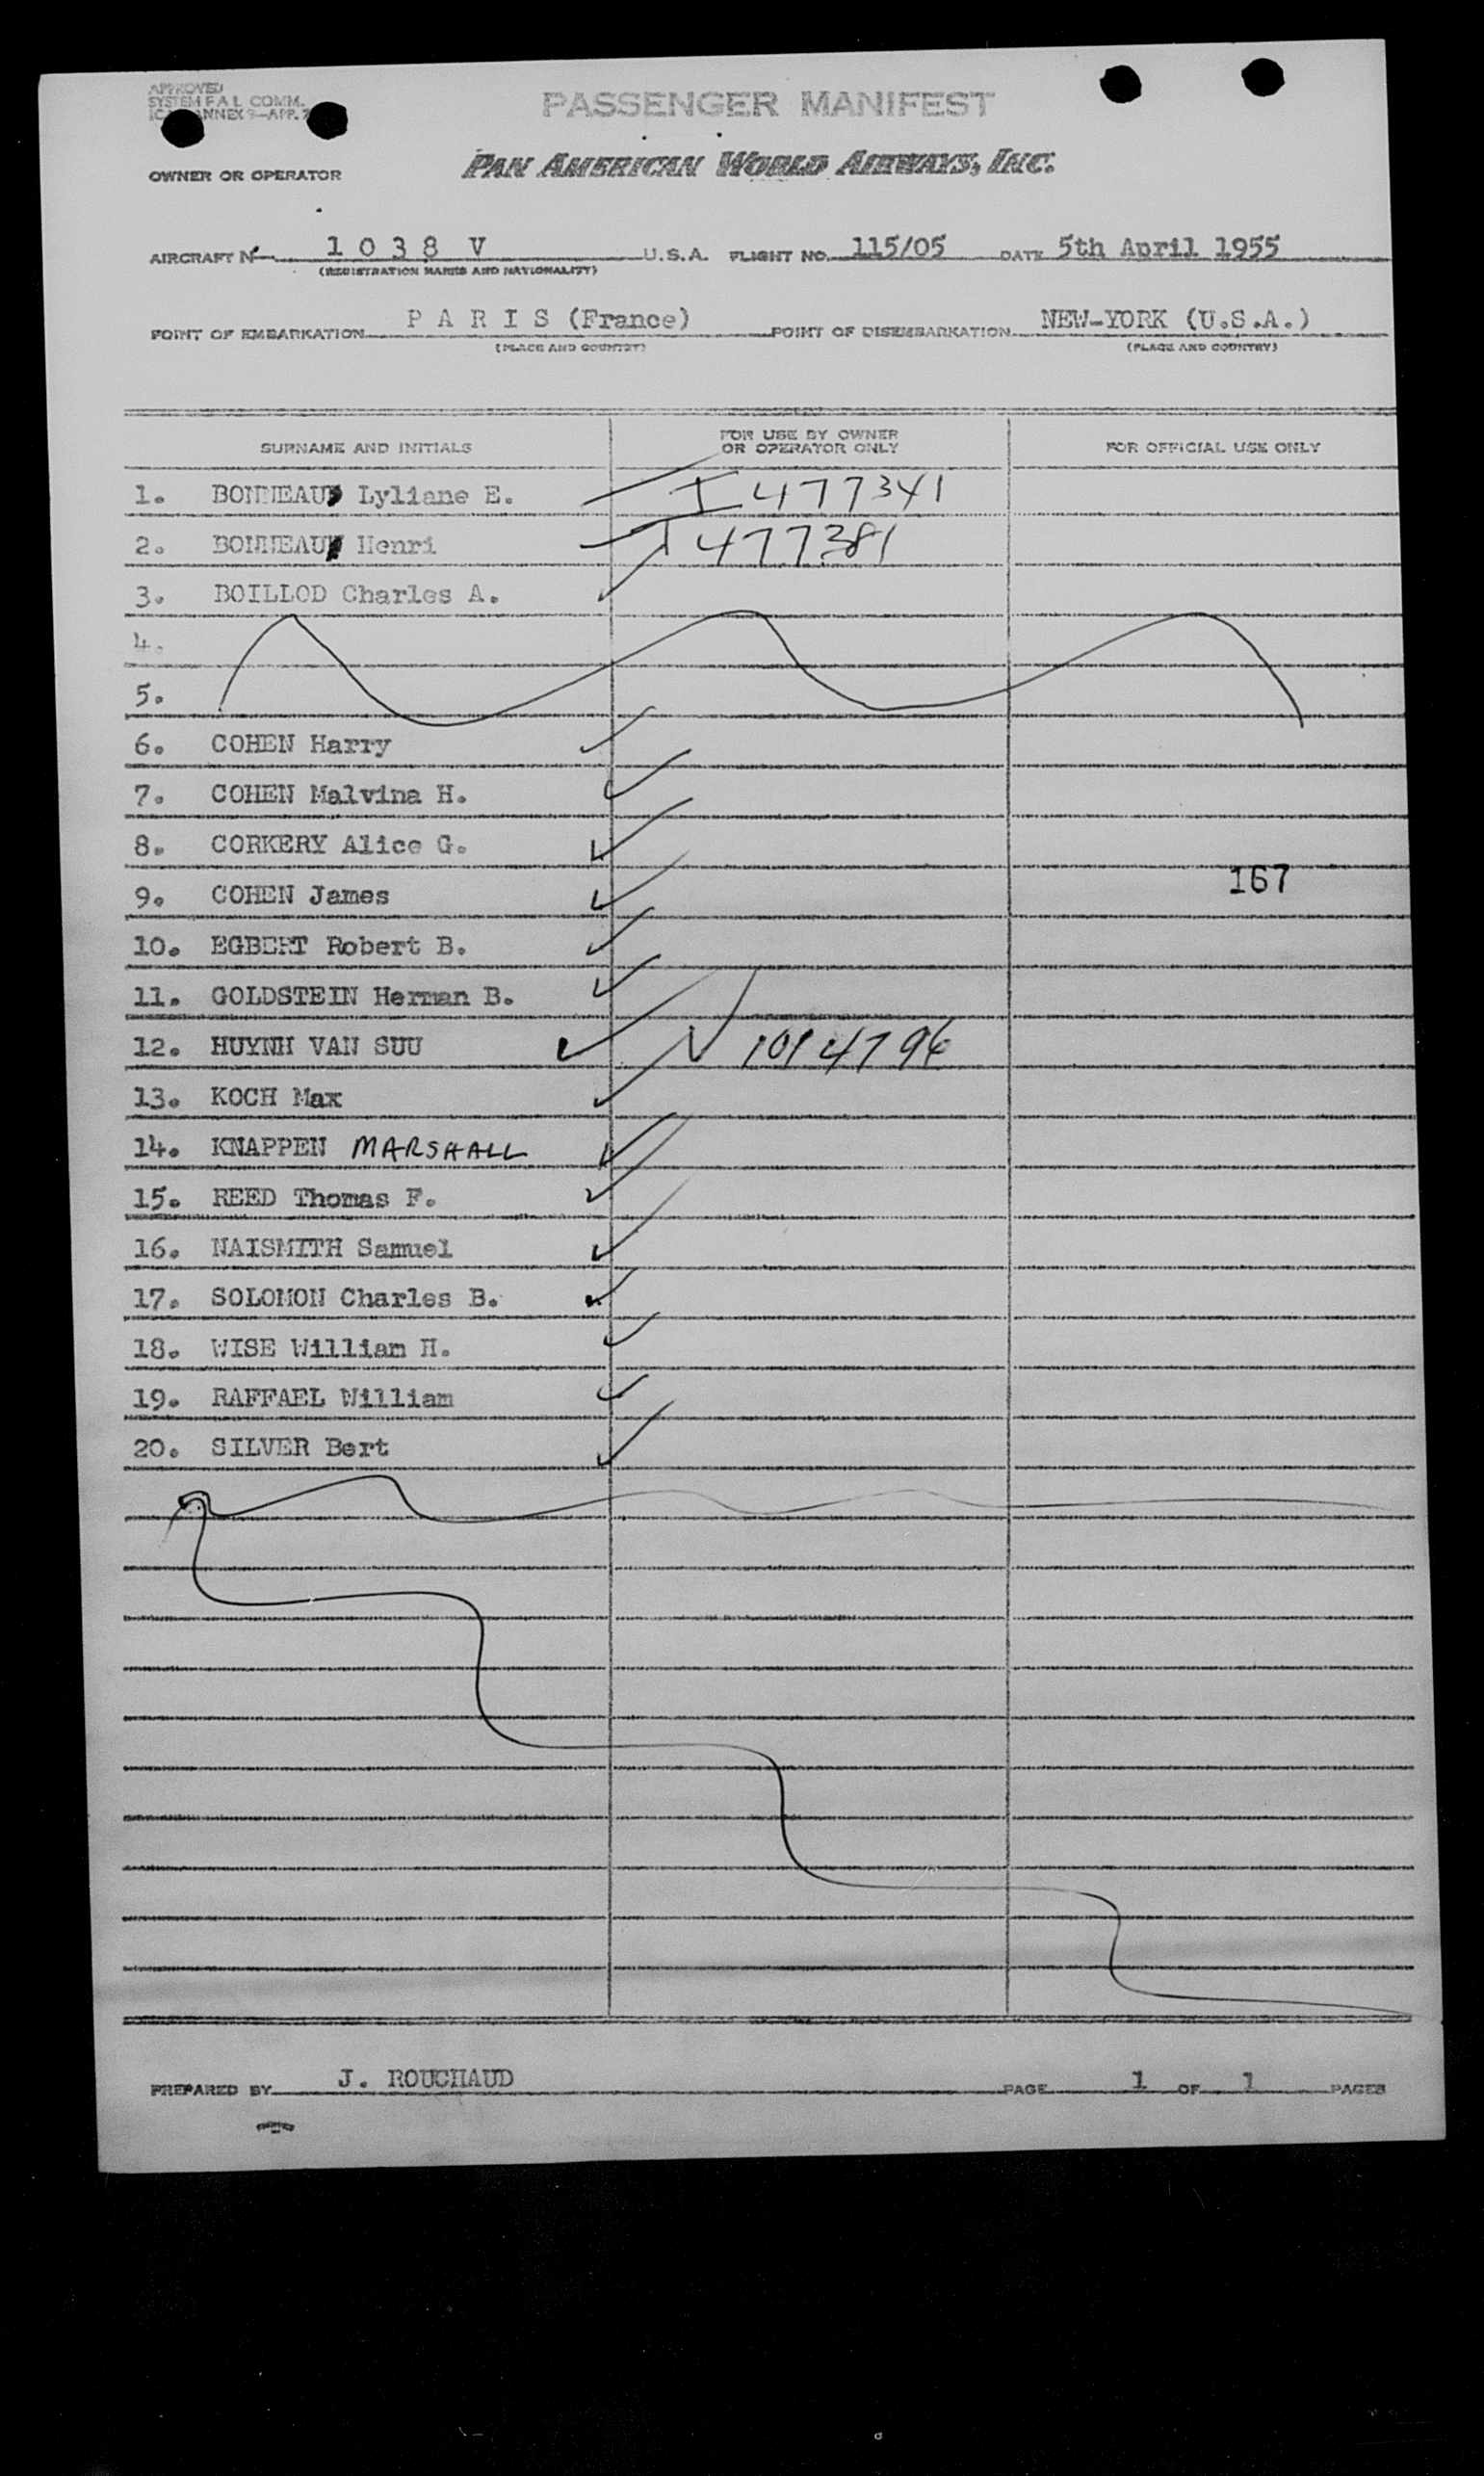 APPROVED
SYSTEM F A L COMM.
ANNEX 9-APP.
PASSENGER MANIFEST
OWNER OR OPERATOR PAN AMERICAN WORLD AIRWAYS, INC.
AIRCRAFT N 1 0 3 8 V U.S.A. FLIGHT NO. 115/05 DATE 5th April 1955
(REGISTRATION MARKS AND NATIONALITY)
POINT OF EMBARKATION P A R I S (France) POINT OF DISEMBARKATION NEW-YORK (U.S.A.)
(PLACE AND COUNTRY) (PLACE AND COUNTRY)
SURNAME AND INITIALS FOR USE BY OWNER OR OPERATOR ONLY FOR OFFICIAL USE ONLY
1. BONNEAU Lyliane E. I 477341
2. BONNEAU Henri I 477381
3. BOILLOD Charles A.
4.
5.
6. COHEN Harry
7. COHEN Malvina H.
8. CORKERY Alice G.
167
9. COHEN James
10. EGBERT Robert B.
11. GOLDSTEIN Herman B.
12. HUYNH VAN SUU V 1014796
13. KOCH Max
14. KNAPPEN MARSHALL
15. REED Thomas F.
16. NAISMITH Samuel
17. SOLOMON Charles B.
18. WISE William H.
19. RAFFAEL William
20. SILVER Bert
PREPARED BY J. ROUCHAUD PAGE 1 OF 1 PAGES